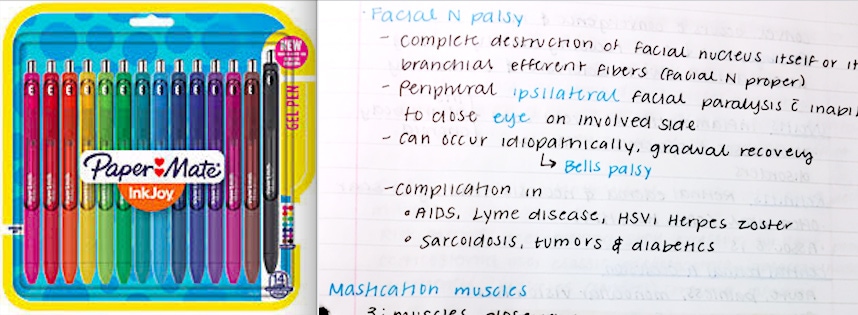 NEW
GEL PEN
Paper Mate
InkJoy
14
Facial N palsy
- Complete destruction of facial nucleus itself or it
branchial efferent fibers (facial N proper)
- Peripheral ipsilateral facial paralysis c̄ inabil
to close eye on involved side
- Can occur idiopathically, gradual recovery
↳ Bells palsy
- Complication in
• AIDS, Lyme disease, HSV, Herpes zoster
• Sarcoidosis, tumors & diabetics
Mastication muscles
3: muscles close